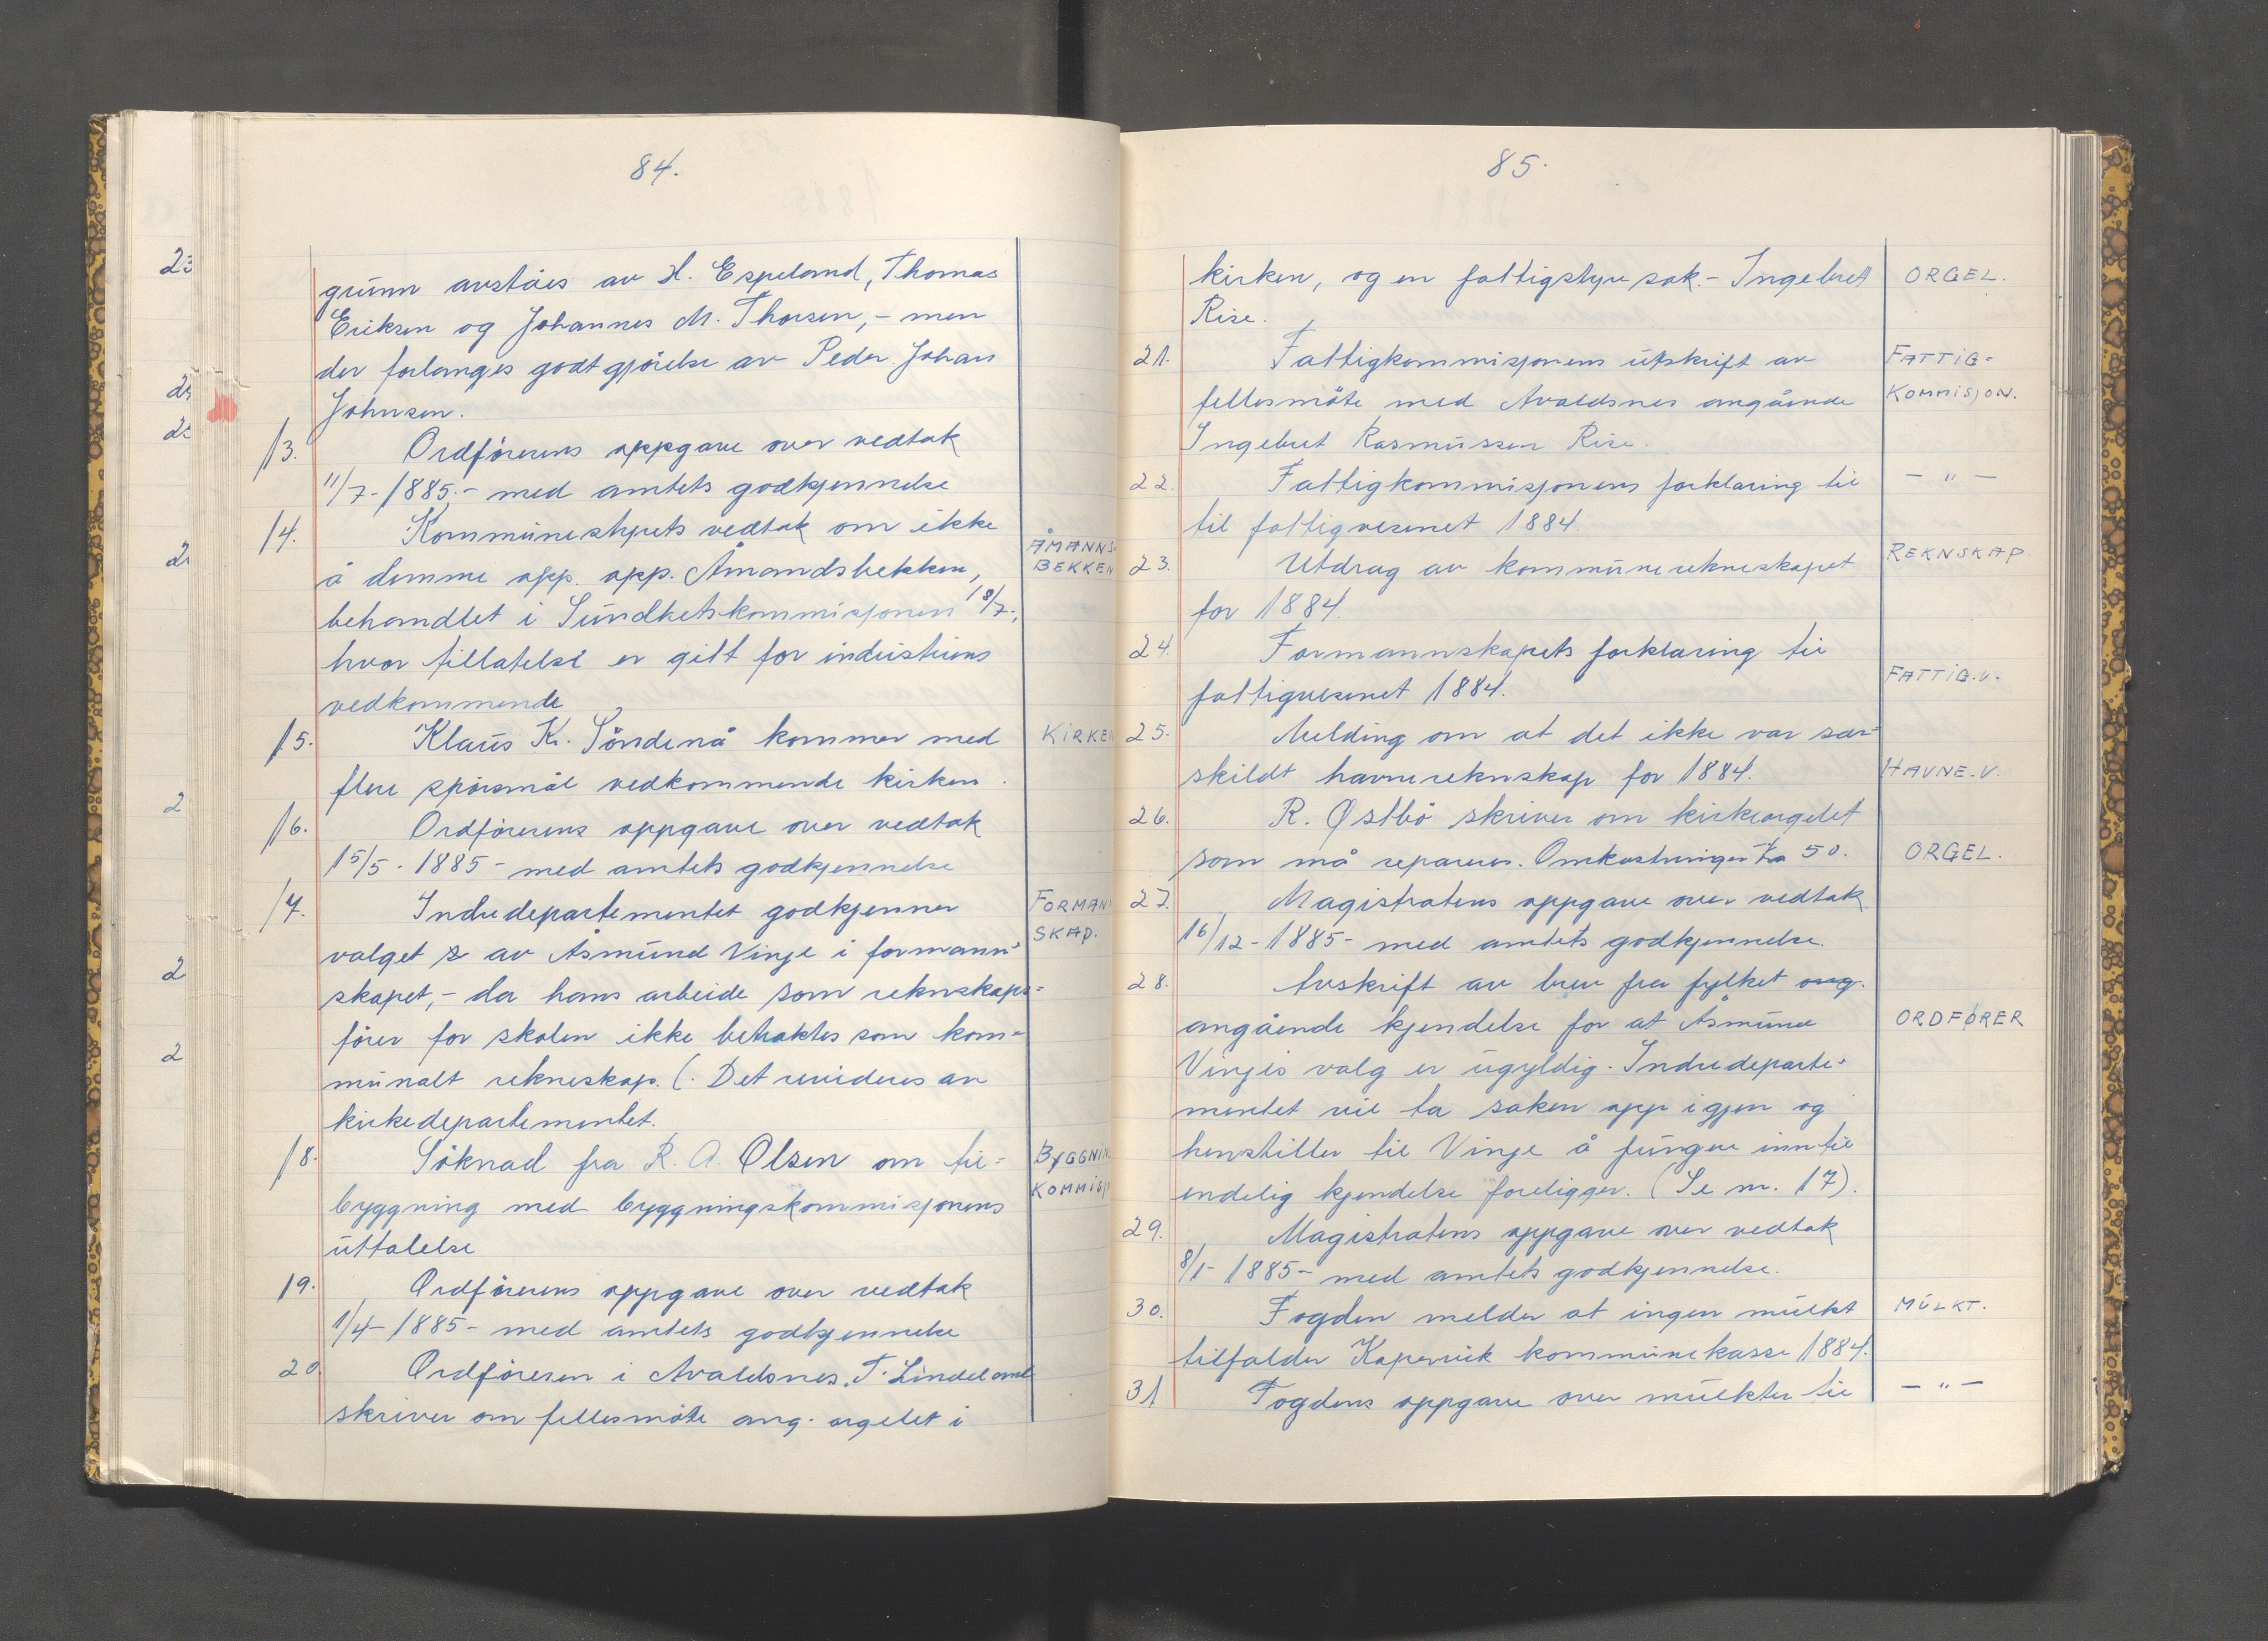 84.
grunn avståes av H. Espeland, Thomas
Eriksen og Johannes M. Thorsen, - men
der forlanges godtgjörelse av Peder Johan
Johnsen.
13. Ordförerens oppgave over vedtak
11/7 - 1885.- med amtets godkjennelse
14. Kommunestyrets vedtak om ikke
å demme opp. opp. Åmandsbekken, ÅMANNS-
BEKKEN
behandlet i Sundhetskommisjonen 18/7.,
hvor tillatelse er gitt for industriens
vedkommende
15. Klaus K. Söndenå kommer med KIRKEN
flere spörsmål vedkommende kirken.
16. Ordförerens oppgave over vedtak
15/5 - 1885 - med amtets godkjennelse
17. Indredepartementet godkjenner FORMANN
valget s av Åsmund Vinje i formann= SKAP.
skapet, - da hans arbeide som reknskaps=
förer for skolen ikke betraktes som kom=
munalt rekneskap. (. Det revideres av
kirkedepartementet.
18. Söknad fra R. A. Olsen om til= BYGGNIN
byggning med byggningskommisjonens KOMMISJ
uttalelse
19. Ordförerens oppgave over vedtak
1/4 - 1885 - med amtets godkjennelse
20. Ordföreren i Avaldsnes. T. Lindeland
skriver om fellesmöte ang. orgelet i
85.
kirken, og en fattigstyresak. - Ingebret ORGEL.
Rise.
21. Fattigkommisjonens utskrift av FATTIG=
fellesmöte med Avaldsnes angående KOMMISJON.
Ingebret Rasmussen Rise.
22. Fattigkommisjonens forklaring til - " -
til fattigvesenet 1884.
23. Utdrag av kommunerekneskapet REKNSKAP.
for 1884.
24. Formannskapets forklaring til
fattigvesenet 1884. FATTIG.V.
25. Melding om at det ikke var sær=
skildt havnereknskap for 1884. HAVNE.V.
26. R. Østbö skriver om kirkeorgelet
som må repareres. Omkostninger Kr 50. ORGEL.
27. Magistratens oppgave over vedtak
16/12 - 1885 - med amtets godkjennelse.
28. Avskrift av brev fra fylket ang.
angående kjendelse for at Åsmund ORDFØRER
Vinjes valg er ugyldig. Indredeparte=
mentet vil ta saken opp igjen og
henstiller til Vinje å fungere inntil
endelig kjendelse foreligger. (Se nr. 17).
29. Magistratens oppgave over vedtak
8/1 - 1885 - med amtets godkjennelse.
30. Fogden melder at ingen mulkt MULKT.
tilfalder Kopervik kommunekasse 1884.
31 Fogdens oppgave over mulkter til - " -